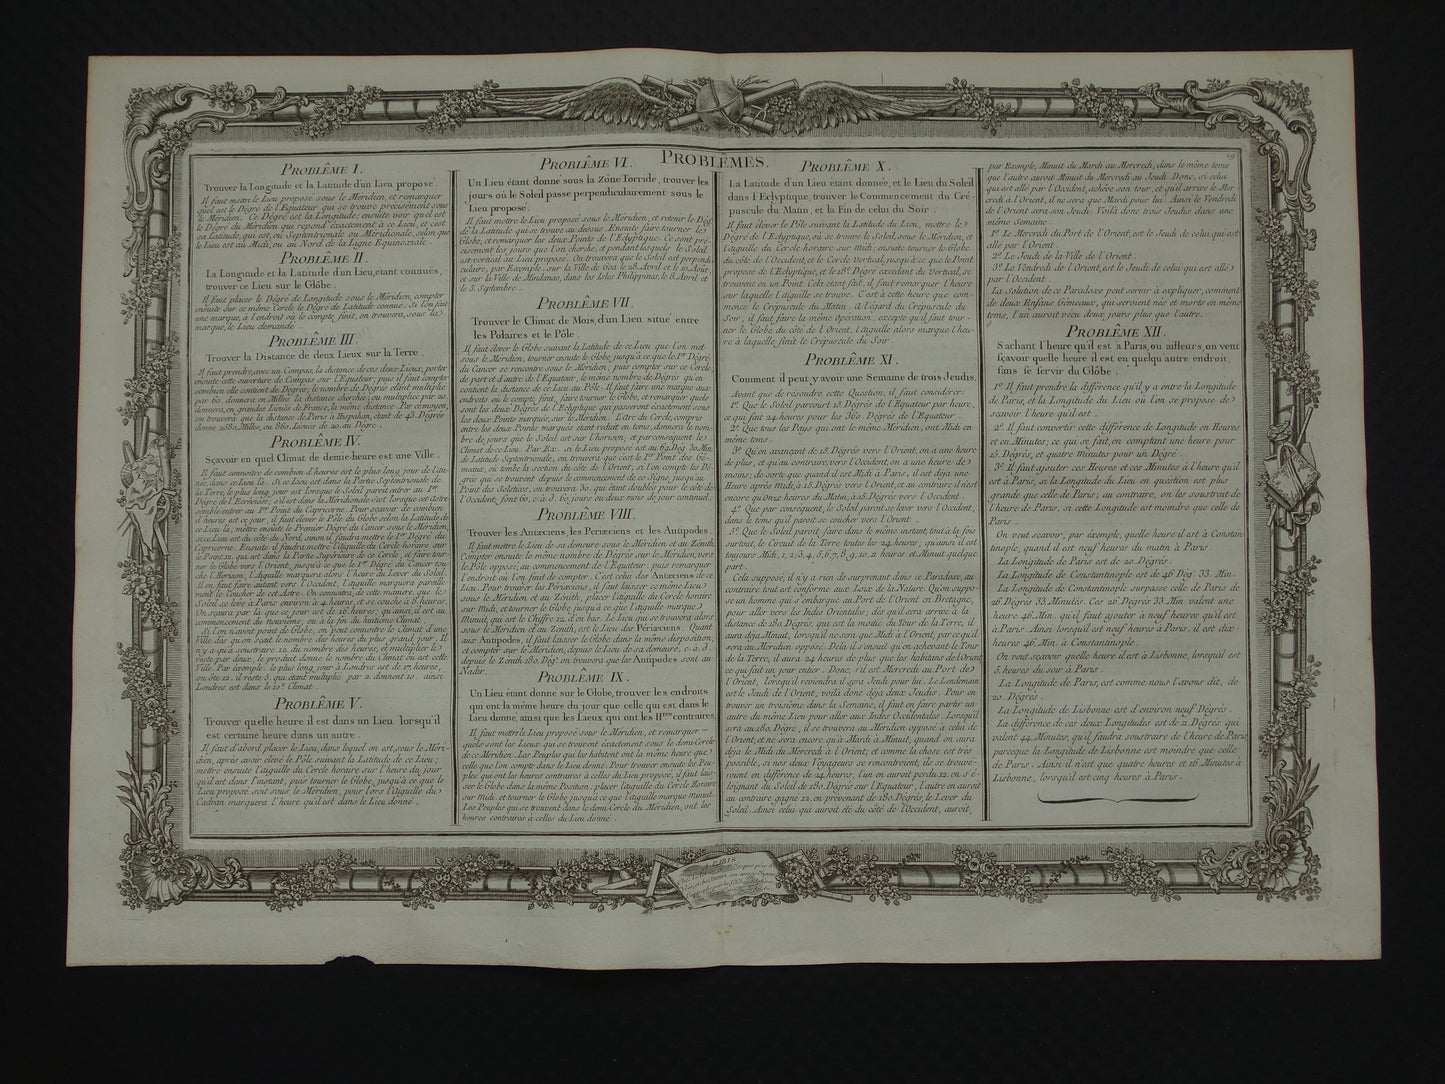 PROBLÊMES.
29
PROBLÊME I.
Trouver la Longitude et la Latitude d'un Lieu proposé.
Il faut mettre le Lieu proposé sous le Méridien, et remarquer
quel est le Dégré de l'Equateur qui se trouve précisément sous
le Méridien. Ce Dégré est la Longitude; ensuite voir quel est
le Dégré du Méridien qui répond exactement à ce Lieu, et c'est
sa Latitude, qui est, ou Septentrionale ou Méridionale, selon que
le Lieu est au Midi, ou au Nord de la Ligne Equinoxiale.
PROBLÊME II.
La Longitude et la Latitude d'un Lieu, etant connues,
trouver ce Lieu sur le Glôbe.
Il faut placer le Dégré de Longitude sous le Méridien, compter
ensuite sur ce même Cercle le Dégré de Latitude connue. Si l'on fait
une marque, à l'endroit où le compte finit, on trouvera, sous la
marque, le Lieu demandé.
PROBLÊME III.
Trouver la Distance de deux Lieux sur la Terre.
Il faut prendre, avec un Compas, la distance de ces deux Lieux, porter
ensuite cette ouverture de Compas sur l'Equateur; puis il faut compter
combien elle contient de Dégrés; le nombre de Dégrés étant multiplié
par 60. donnera en Milles la distance cherchée; ou multipliée par 20.
donnera, en grandes Lieües de France, la même distance. Par ce moyen,
on trouvera, que la distance de Paris à Ispahan, étant de 43. Dégrés
donne 2580. Milles, ou 860. Lieues de 20 au Dégré.
PROBLÊME IV.
Sçavoir en quel Climat de demie-heure est une Ville.
Il faut connoitre de combien d'heures est le plus long jour de l'an-
née, dans ce Lieu là. Si ce Lieu est dans la Partie Septentrionale de
la Terre, le plus long jour est lorsque le Soleil paroit entrer au 1er
Dégré de l'Ecrévisse; s'il est dans la Méridionale c'est lorsque cet Astre
semble entrer au 1er Point du Capricorne. Pour sçavoir de combien
d'heures est ce jour, il faut élever le Pôle du Globe selon la Latitude de
ce Lieu là, mètre ensuite le Premier Dégré du Cancer sous le Méridien,
si ce Lieu est du côté du Nord, sinon il faudra mettre le 1er Dégré du
Capricorne. Ensuite il faudra mettre l'Aiguille du Cercle horaire sur
le Point 12. qui est dans la Partie Supérieure de ce Cercle, et faire tour-
ner le Globe vers l'Orient, jusqu'à ce que le 1er Dégré du Cancer tou-
che l'Horison, l'Aiguille marquera alors l'heure du Lever du Soleil.
il en faut faire autant vers l'Occident, l'aiguille marquera pareille-
ment le Coucher de cet Astre. On connoitra, de cette manière, que le
Soleil se lève à Paris environ à 4. heures, et se couche à 8. heures.
On sçaura par là que ce jour est de 16 heures; qu'ainsi, il est au
commencement du neuvième, ou à la fin du huitième Climat.
Si l'on n'avoit point de Globe, on peut connoitre le Climat d'une
Ville dès qu'on sçait le nombre des heures du plus grand jour. Il
n'y a qu'à soustraire 12. du nombre des heures, et multiplier le
reste par deux, le produit donne le nombre du Climat où est cette
Ville. Par éxemple: le plus long jour à Londres est de 17. heures,
on ôte 12. il reste 5. qui étant multiplié par 2. donnent 10. ainsi
Londres est dans le 10e Climat.
PROBLÊME V.
Trouver quelle heure il est dans un Lieu lorsqu'il
est certaine heure dans un autre.
Il faut d'abord placer le Lieu, dans lequel on est, sous le Méri-
dien, après avoir élevé le Pôle suivant la Latitude de ce Lieu;
mettre ensuite l'Aiguille du Cercle horaire sur l'heure du jour
qu'il est dans l'instant, puis tourner le Globe, jusqu'à ce que le
Lieu proposé soit sous le Méridien, pour lors l'Aiguille du
Cadran marquera l'heure qu'il est dans le Lieu donné.
PROBLÊME VI.
Un Lieu étant donné sous la Zône Torride, trouver les
jours où le Soleil passe perpendiculairement sous le
Lieu proposé.
Il faut mettre le Lieu proposé sous le Méridien, et retenir le Dég.
de la Latitude qui se trouve au dessus. Ensuite faire tourner le
Globe, et remarquer les deux Points de l'Ecliptique. Ce sont pré-
cisément les jours que l'on cherche, et pendant lesquels le Soleil
est vertical au Lieu proposé. On trouvera que le Soleil est perpendi-
culaire, par Exemple, sur la Ville de Goa le 28. Avril et le 10. Août,
et sur la Ville de Mindanao, dans les Isles Philippines, le 8. Avril et
le 5. Septembre.
PROBLÊME VII.
Trouver le Climat de Mois, d'un Lieu situé entre
les Polaires et le Pôle.
Il faut élever le Globe suivant la Latitude de ce Lieu que l'on met
sous le Méridien, tourner ensuite le Globe, jusqu'à ce que le 1er Dégré
du Cancer se rencontre sous le Méridien; puis compter sur ce Cercle,
de part et d'autre de l'Equateur, le même nombre de Dégrés qu'en
contient la distance de ce Lieu au Pôle. Il faut faire une marque aux
endroits où le compte finit, faire tourner le Globe, et remarquer quels
sont les deux Dégrés de l'Ecliptique qui passeront éxactement sous
les deux Points marqués, sur le Méridien. L'Arc du Cercle compris
entre les deux Points marqués étant réduit en tems, donnera le nom-
bre de jours que le Soleil est sur l'horison, et parconséquent le
Climat de ce Lieu. Par Ex. si le Lieu proposé est au 69. Dég. 30. Min.
de Latitude Septentrionale, on trouvera que c'est le 1er Point des Gé-
meaux, où tombe la section du côté de l'Orient; si l'on compte les Dé-
grés qui se trouvent depuis le commencement de ce Signe, jusqu'au
Point des Solstices, on trouvera 30. qui étant doublés pour le côté de
l'Occident, font 60, c. à. d. 60. jours ou deux mois de jour continuel.
PROBLÊME VIII.
Trouver les Antœciens, les Periœciens et les Antipodes.
Il faut mettre le Lieu de sa demeure sous le Méridien et au Zénith,
Compter ensuite le même nombre de Dégrés sur le Méridien, vers
le Pôle opposé, au commencement de l'Equateur: puis remarquer
l'endroit où l'on finit de compter. C'est celui des Antœciens de ce
Lieu. Pour trouver les Périœciens, il faut laisser ce même Lieu
sous le Méridien et au Zénith, placer l'aiguille du Cercle horaire
sur Midi, et tourner le Globe jusqu'à ce que l'aiguille marque
Minuit, qui est le Chiffre 12. d'en bas. Le Lieu qui se trouvera alors
sous le Méridien et au Zénith, est le Lieu des Périœciens. Quant
aux Antipodes, il faut laisser le Globe dans la même disposition;
et compter sur le Méridien, depuis le Lieu de sa demeure, c. à. d.
depuis le Zénith 180. Dég. on trouvera que les Antipodes sont au
Nadir.
PROBLÊME IX.
Un Lieu étant donné sur le Globe, trouver les endroits
qui ont la même heure du jour que celle qui est dans le
Lieu donné, ainsi que les Lieux qui ont les Hres contraires.
Il faut mettre le Lieu proposé sous le Méridien, et remarquer
quels sont les Lieux qui se trouvent éxactement sous le demi-Cercle
de ce Méridien. Les Peuples qui les habitent ont la même heure que
celle que l'on compte dans le Lieu donné. Pour trouver ensuite les Peu-
ples qui ont les heures contraires à celles du Lieu proposé, il faut lais-
ser le Globe dans la même Position, placer l'aiguille du Cercle Horaire
sur Midi, et tourner le Globe, jusqu'à ce que l'aiguille marque Minuit.
Les Peuples qui se trouvent dans le demi-Cercle du Méridien, ont les
heures contraires à celles du Lieu donné.
PROBLÊME X.
La Latitude d'un Lieu etant donnée, et le Lieu du Soleil
dans l'Ecliptique, trouver le Commencement du Cré-
puscule du Matin, et la Fin de celui du Soir.
Il faut élever le Pôle suivant la Latitude du Lieu, mettre le
Dégré de l'Ecliptique, où se trouve le Soleil, sous le Méridien, et
l'aiguille du Cercle horaire sur Midi; ensuite tourner le Globe
du côté de l'Occident, et le Cercle Vertical, jusqu'à ce que le Point
proposé de l'Ecliptique, et le 18e Dégré excédant du Vertical, se
trouvent en un Point. Cela étant fait, il faut remarquer l'heure
sur laquelle l'aiguille se trouve. C'est à cette heure que com-
mence le Crépuscule du Matin. à l'égard du Crépuscule du
Soir, il faut faire la même opération, excepté qu'il faut tour-
ner le Globe du côté de l'Orient, l'aiguille alors marque l'heu-
re à laquelle finit le Crépuscule du Soir.
PROBLÊME XI.
Comment il peut y avoir une Semaine de trois Jeudis.
Avant que de résoudre cette Question, il faut considérer:
1º. Que le Soleil parcourt 15. Dégrés de l'Equateur par heure,
ce qui fait 24. heures pour les 360. Dégrés de l'Equateur.
2º. Que tous les Pays qui ont le même Méridien, ont Midi en
même tems.
3º. Qu'en avançant de 15. Dégrés vers l'Orient, on a une heure
de plus, et qu'au contraire, vers l'Occident, on a une heure de
moins; de sorte que quand il est Midi à Paris, il est déja une
Heure après Midi, à 15. Dégrés vers l'Orient, et au contraire il n'est
encore qu'Onze heures du Matin, à 15. Dégrés vers l'Occident.
4º. Que par conséquent, le Soleil paroit se lever vers l'Occident,
dans le tems qu'il paroit se coucher vers l'Orient.
5º. Que le Soleil paroit faire dans le même instant, tout à la fois
surtout, le Circuit de la Terre toutes les 24 heures; qu'ainsi il est
toujours Midi, 1, 2, 3, 4, 5, 6, 7, 8, 9, 10, 11 heures et Minuit quelque
part.
Cela supposé, il n'y a rien de surprenant dans ce Paradoxe, au
contraire tout est conforme aux Loix de la Nature. Qu'on suppo-
se un homme qui s'embarque au Port de l'Orient en Brétagne,
pour aller vers les Indes Orientales; dès qu'il sera arrivé à la
distance de 180. Dégrés, qui est la moitié du Tour de la Terre, il
aura déja Minuit, lorsqu'il ne sera que Midi à l'Orient, parce qu'il
sera au Méridien opposé. Delà il s'ensuit qu'en achevant le Tour
de la Terre, il aura 24 heures de plus que les habitans de l'Orient
ce qui fait un jour entier. Donc, il est Mercredi au Port de
l'Orient, lorsqu'il reviendra il sera Jeudi pour lui. Le Lendemain
est le Jeudi de l'Orient, voilà donc déja deux Jeudis. Pour en
trouver un troisième dans la Semaine, il faut en faire partir un
autre du même Lieu pour aller aux Indes Occidentales. Lorsqu'il
sera au 180. Dégré, il se trouvera au Méridien opposé à celui de
l'Orient, et ne sera encore qu'à Mardi à Minuit, quand on aura
déja le Midi du Mercredi à l'Orient; et comme la chose est très
possible, si nos deux Voyageurs se rencontroient, ils se trouve-
roient en différence de 24 heures, l'un en auroit perdu 12. en s'é-
loignant du Soleil de 180. Dégrés sur l'Equateur, l'autre en auroit
au contraire gagné 12. en prévenant de 180. Dégrés, le Lever du
Soleil. Ainsi celui qui auroit été du côté de l'Occident, auroit,
par Exemple, Minuit du Mardi au Mercredi, dans le même tems
que l'autre auroit Minuit du Mercredi au Jeudi. Donc, si celui
qui est allé par l'Occident, achève son tour, et qu'il arrive le Mer-
credi à l'Orient, il ne sera que Mardi pour lui. Ainsi le Vendredi
de l'Orient sera son Jeudi. Voilà donc trois Jeudis dans une
même Semaine.
1º. Le Mercredi du Port de l'Orient, est le Jeudi de celui qui est
allé par l'Orient.
2º. Le Jeudi de la Ville de l'Orient.
3º. Le Vendredi de l'Orient, est le Jeudi de celui qui est allé
par l'Occident.
La Solution de ce Paradoxe peut servir à expliquer, comment
de deux Enfans Gémeaux, qui seroient nés et morts en même
tems, l'un auroit vécu deux jours plus que l'autre.
PROBLÊME XII.
Sachant l'heure qu'il est à Paris, ou ailleurs, on veut
sçavoir quelle heure il est en quelqu'autre endroit,
sans se servir du Glôbe.
1º. Il faut prendre la différence qu'il y a entre la Longitude
de Paris, et la Longitude du Lieu où l'on se propose de
sçavoir l'heure qu'il est.
2º. Il faut convertir cette différence de Longitude en Heures
et en Minutes; ce qui se fait, en comptant une heure pour
15. Dégrés, et quatre Minutes pour un Dégré.
3º. Il faut ajouter ces Heures et ces Minutes à l'heure qu'il
est à Paris, si la Longitude du Lieu en question est plus
grande que celle de Paris; au contraire, on les soustrait de
l'heure de Paris, si cette Longitude est moindre que celle de
Paris.
On veut sçavoir, par éxemple, quelle heure il est à Constan-
tinople, quand il est neuf heures du matin à Paris.
La Longitude de Paris est de 20 Dégrés.
La Longitude de Constantinople est de 46 Dég. 33. Min.
La Longitude de Constantinople surpasse celle de Paris de
26 Dégrés 33. Minutes. Ces 26 Dégrés 33 Min. valent une
heure 46. Min. qu'il faut ajouter à neuf heures qu'il est
à Paris. Ainsi lorsqu'il est neuf heures à Paris, il est dix
heures 46. Min. à Constantinople.
On veut sçavoir quelle heure il est à Lisbonne, lorsqu'il est
5. heures du soir à Paris.
La Longitude de Paris, est comme nous l'avons dit, de
20. Dégrés.
La Longitude de Lisbonne est d'environ neuf Dégrés.
La différence de ces deux Longitudes est de 11. Dégrés qui
valent 44. Minutes, qu'il faudra soustraire de l'heure de Paris,
parceque la Longitude de Lisbonne est moindre que celle
de Paris. Ainsi il n'est que quatre heures et 16 Minutes à
Lisbonne, lorsqu'il est cinq heures à Paris.
A PARIS